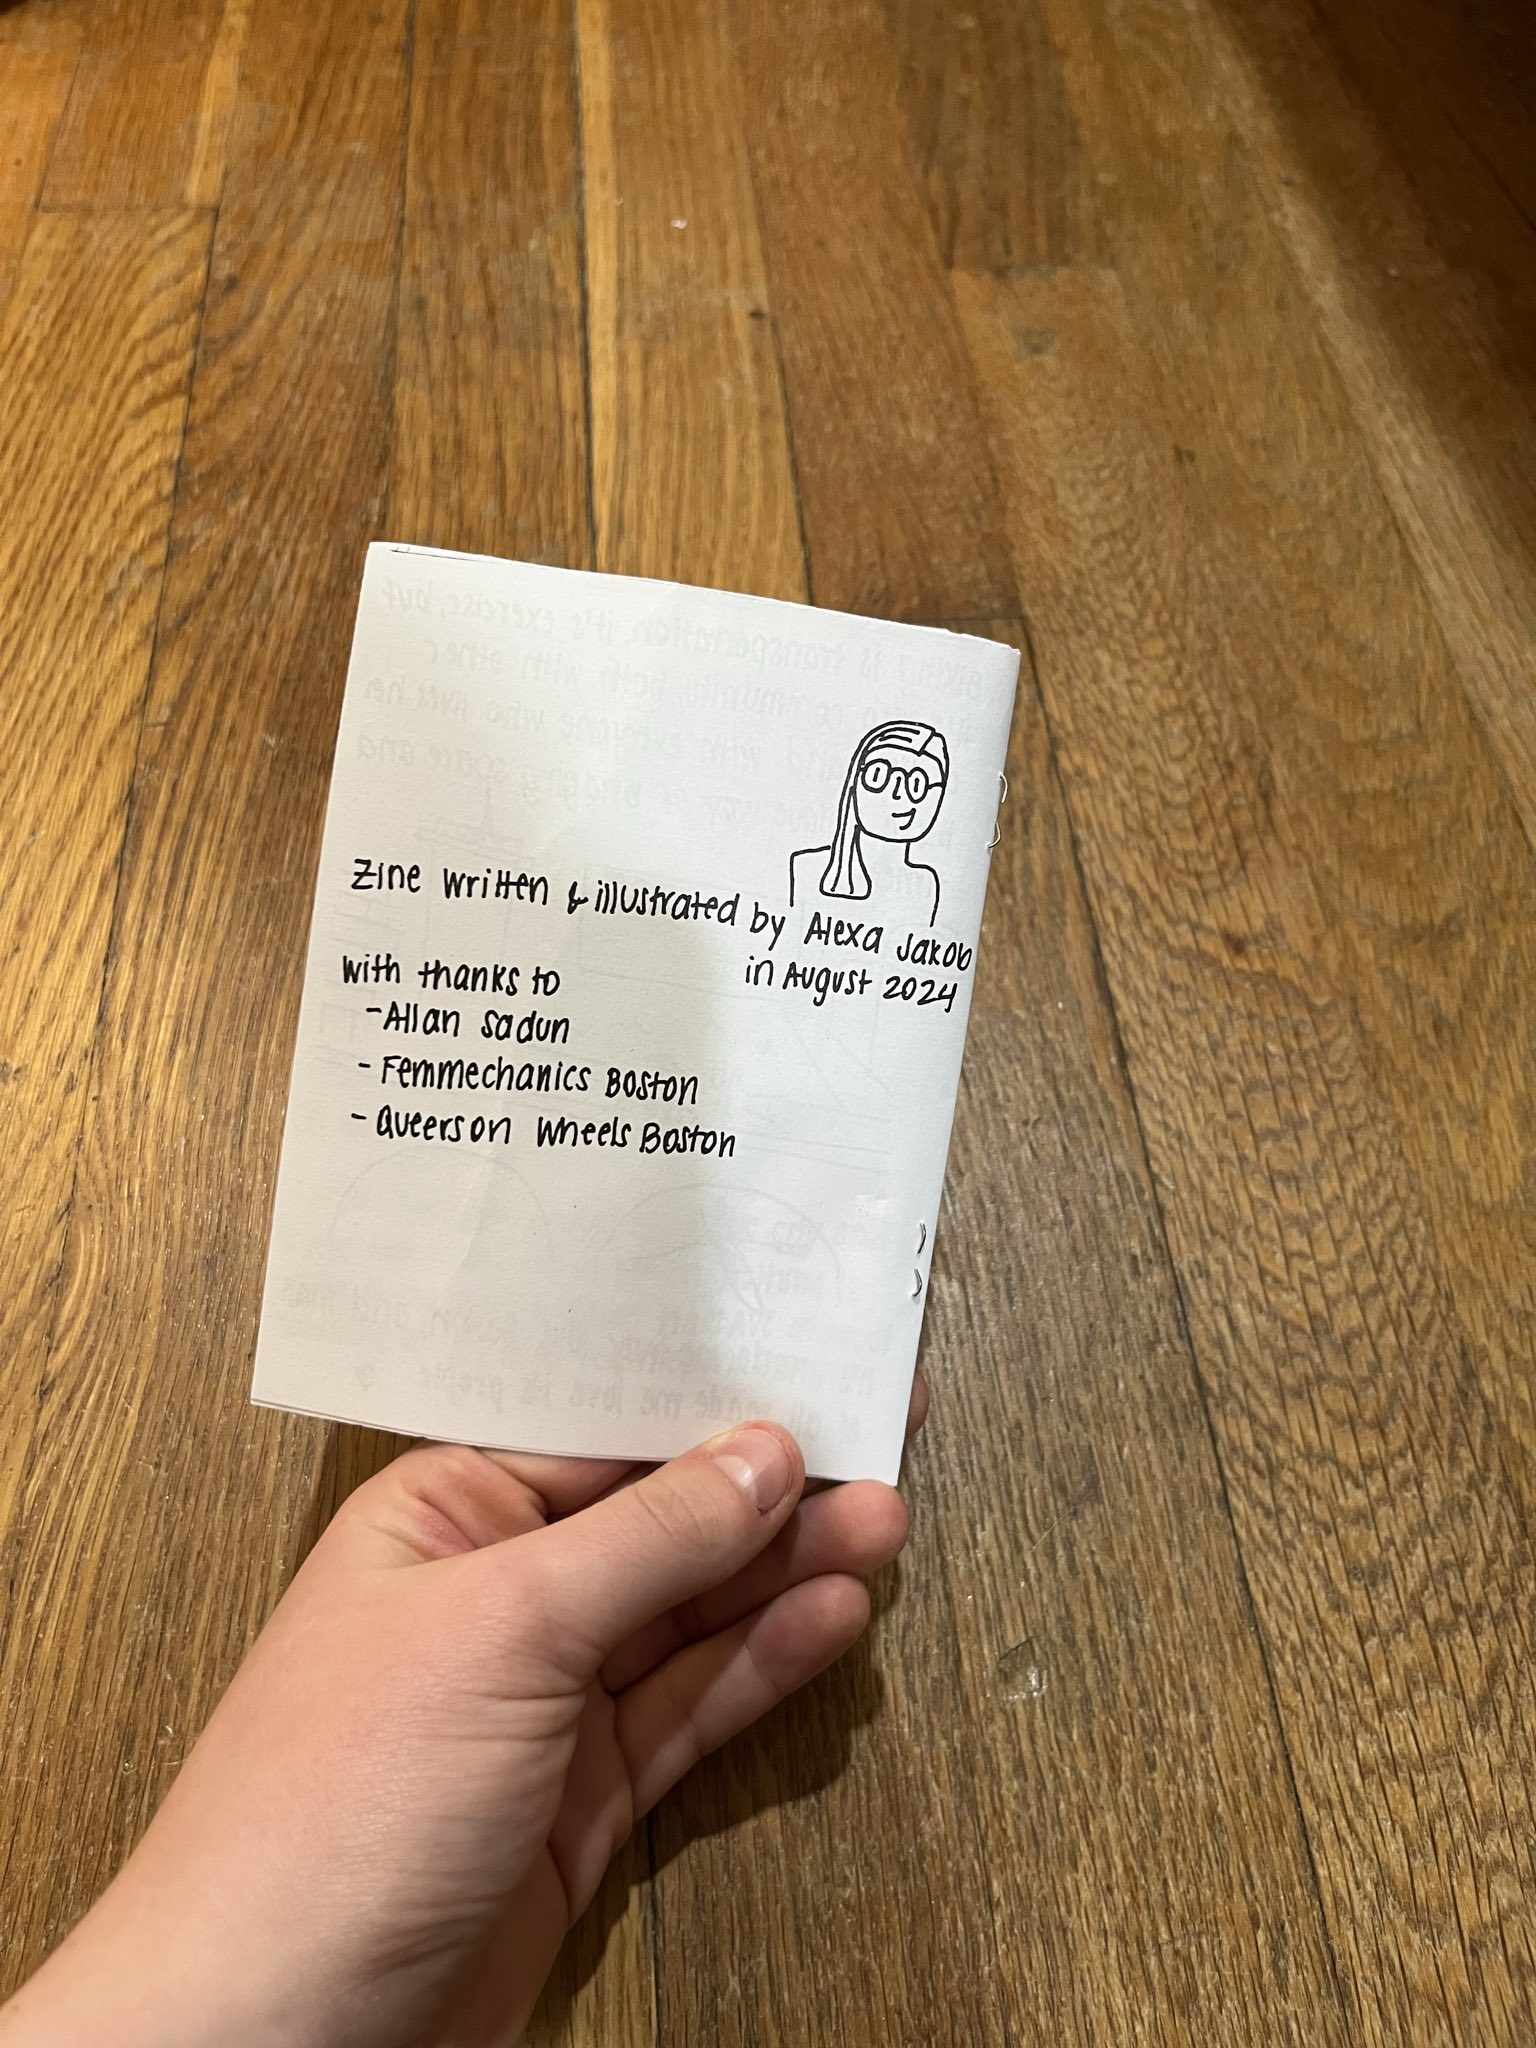 Zine written & illustrated by Alexa Jakob
in August 2024
with thanks to
- Allan Sadun
- Femmechanics Boston
- Queers on Wheels Boston